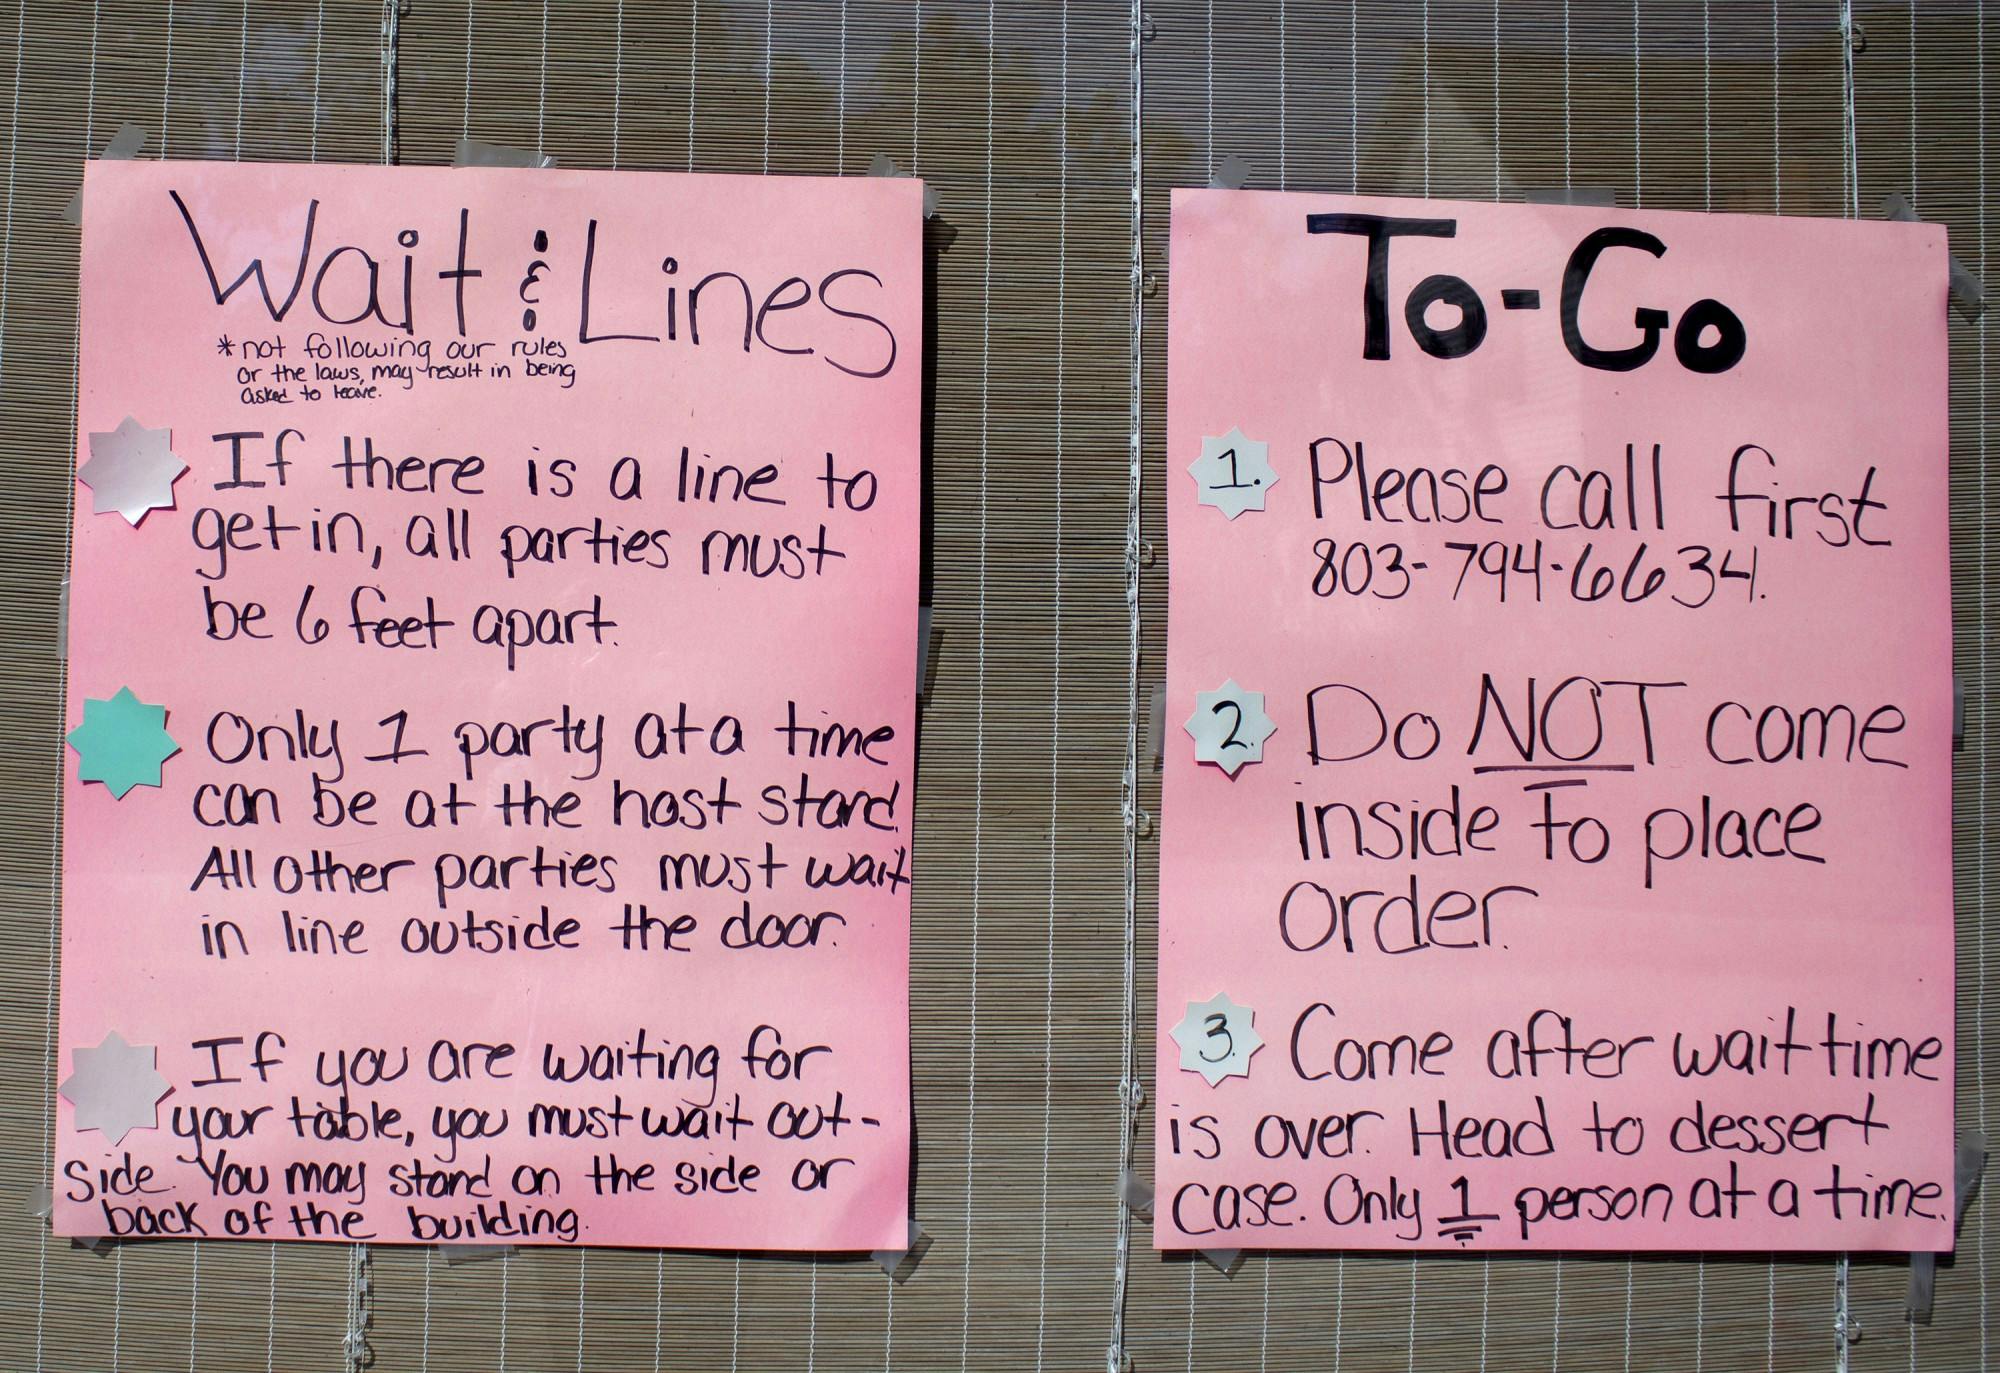 Wait & Lines
*not following our rules
or the laws, may result in being
asked to leave.
If there is a line to
get in, all parties must
be 6 feet apart.
Only 1 party at a time
can be at the host stand.
All other parties must wait
in line outside the door.
If you are waiting for
your table, you must wait out-
side. You may stand on the side or
back of the building.
To-Go
1. Please call first
803-794-6634.
2. Do NOT come
inside to place
order.
3. Come after wait time
is over. Head to dessert
case. Only 1 person at a time.